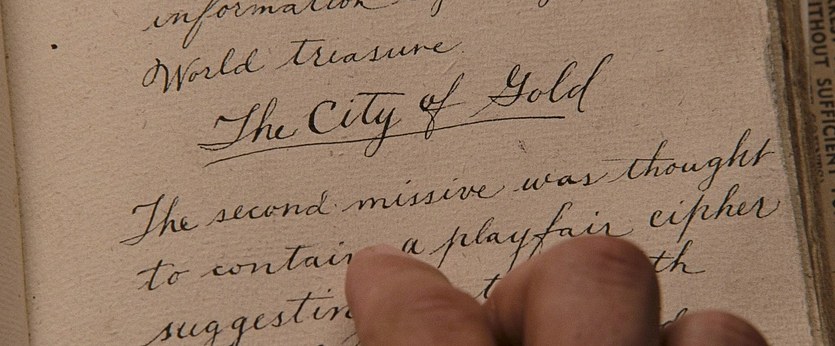 information
World treasure
The City of Gold
The second missive was thought
to contain a playfair cipher
suggestin
ITHOUT SUFFICIENT